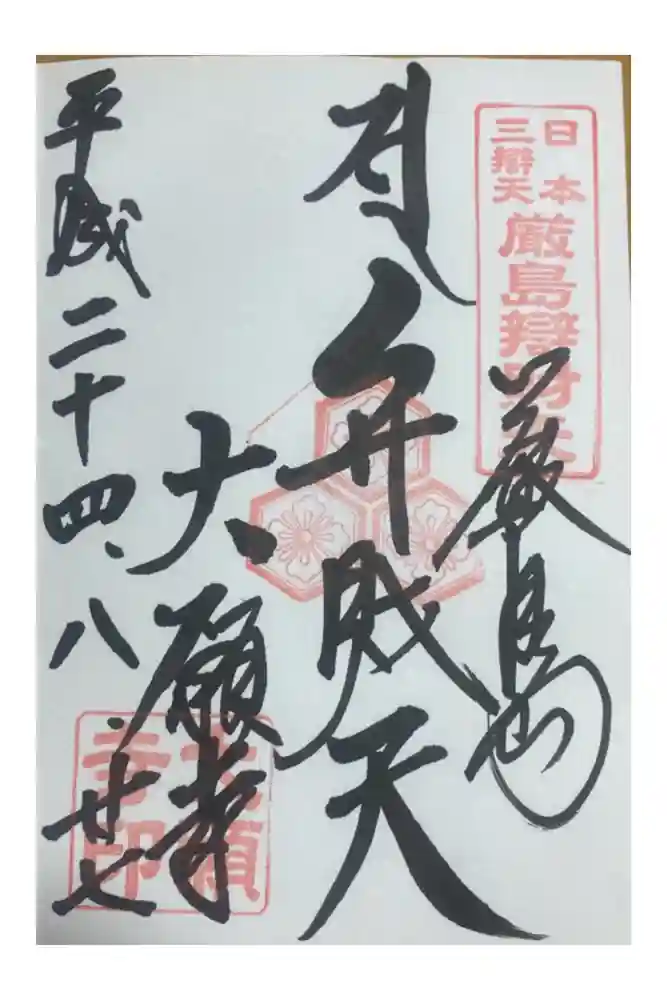 日本
三辯天
厳島辯財天
厳島
弁財天
大願寺
大願寺印
平成二十四、八、廿七